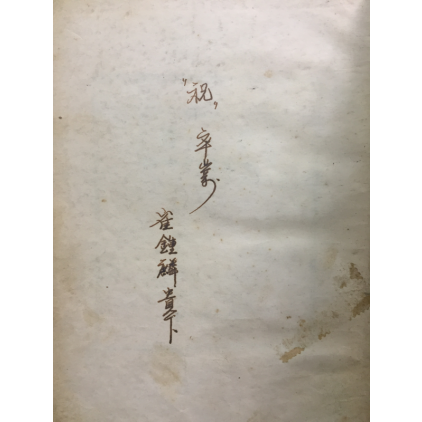 "祝"
卒業
崔鍾麟 貴下